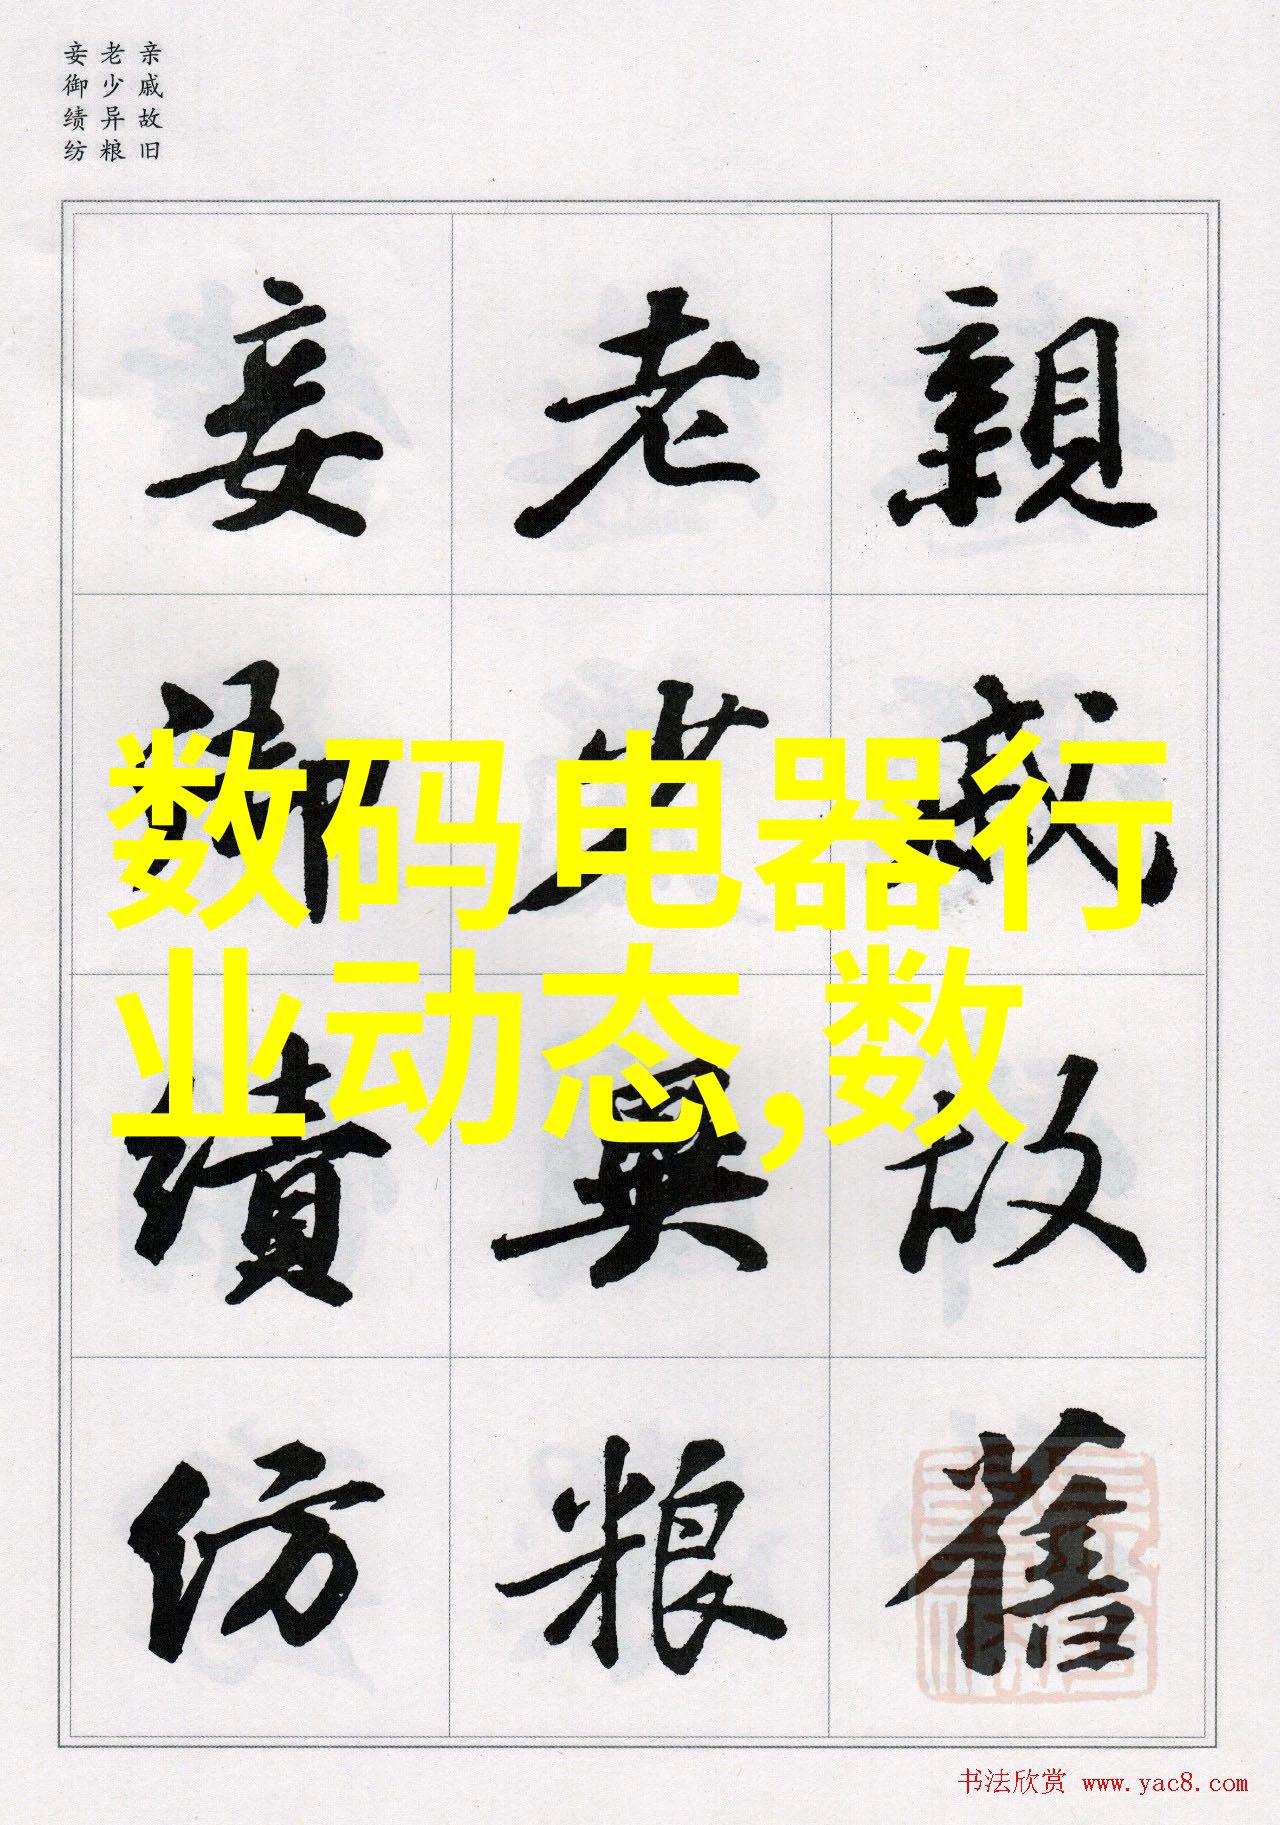 亲戚故旧
老少异粮
妾御绩纺
親戚故舊
老少異粮
妾御績紡
数码电器行
业动态,数
书法欣赏 www.yac8.com